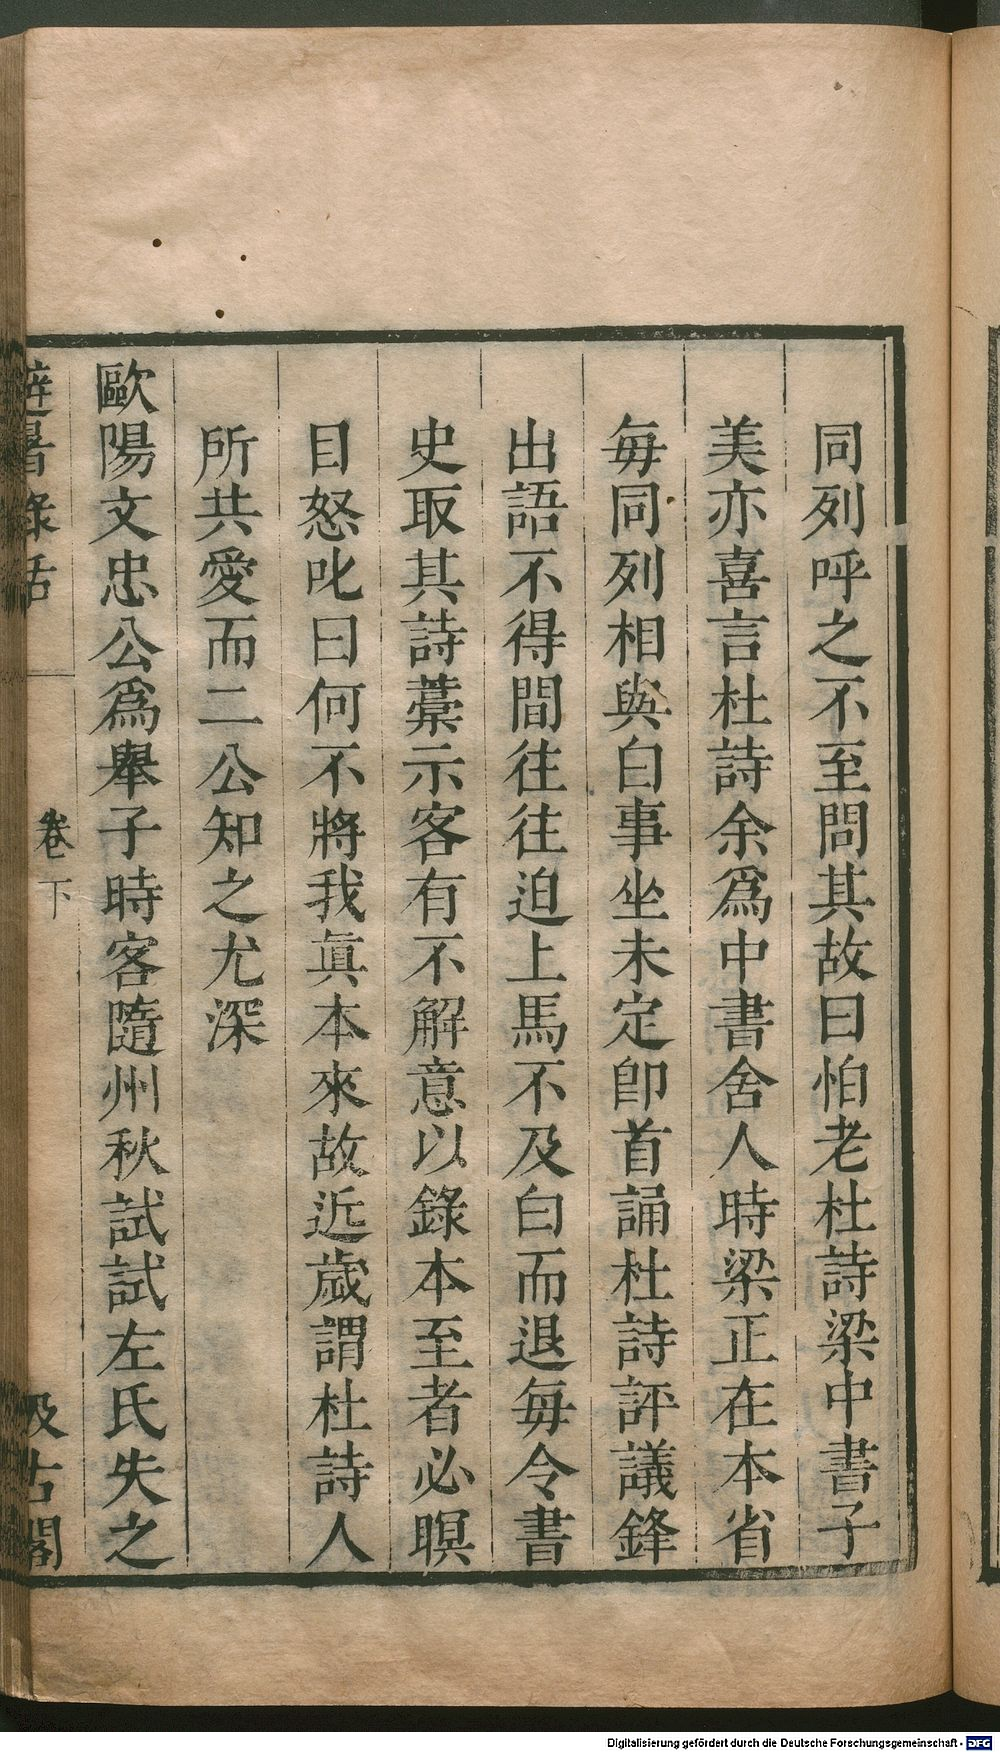 同列呼之不至問其故曰怕老杜詩梁中書子
美亦喜言杜詩余爲中書舍人時梁正在本省
每同列相與白事坐未定卽首誦杜詩評議鋒
出語不得間往往迫上馬不及白而退每令書
史取其詩藁示客有不解意以錄本至者必瞑
目怒叱曰何不將我眞本來故近歲謂杜詩人
所共愛而二公知之尤深
歐陽文忠公爲舉子時客隨州秋試試左氏失之
避暑錄話
卷下
汲古閣
Digitalisierung gefördert durch die Deutsche Forschungsgemeinschaft - DFG